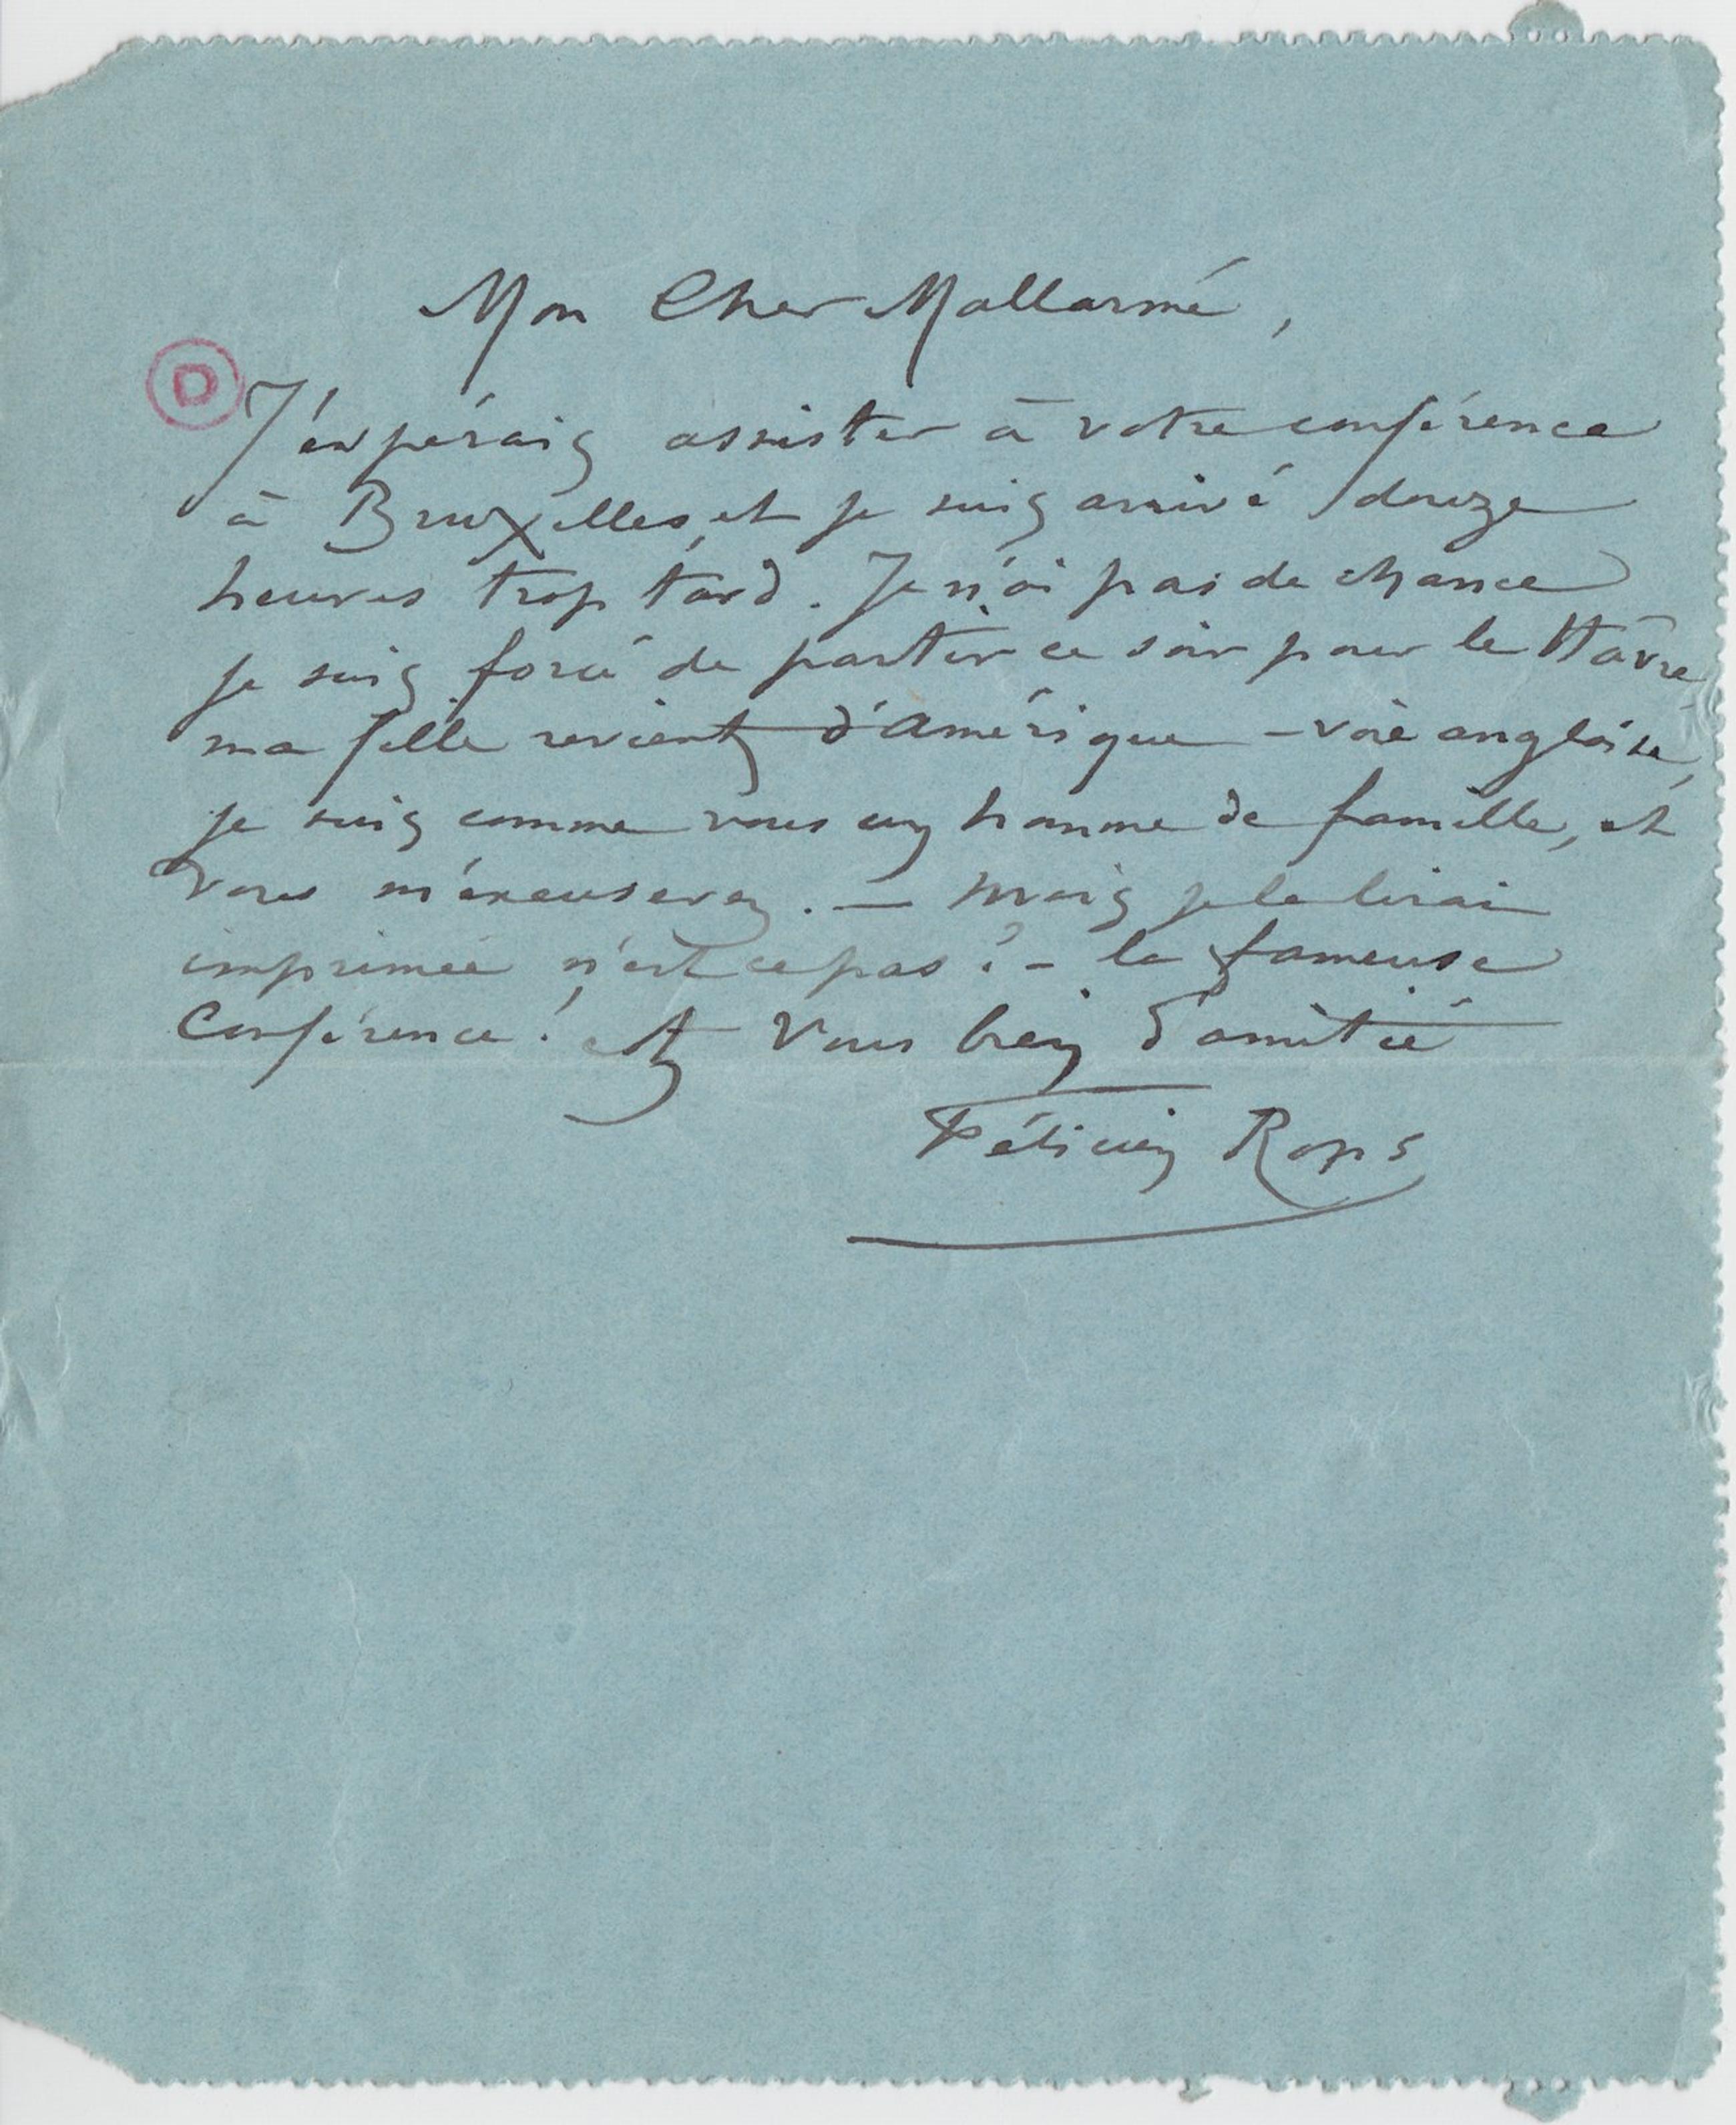 Mon Cher Mallarmé,
D
J'espérais assister à votre conférence
à Bruxelles, et je suis arrivé douze
heures trop tard. Je n'ai pas de chance
je suis forcé de partir ce soir pour le Hâvre
ma fille revient d'Amérique – voie anglaise,
je suis comme vous un homme de famille, et
vous m'excuserez. — Mais je la lirai
imprimée n'est ce pas? – la fameuse
Conférence! et Vous bien d'amitié
Félicien Rops